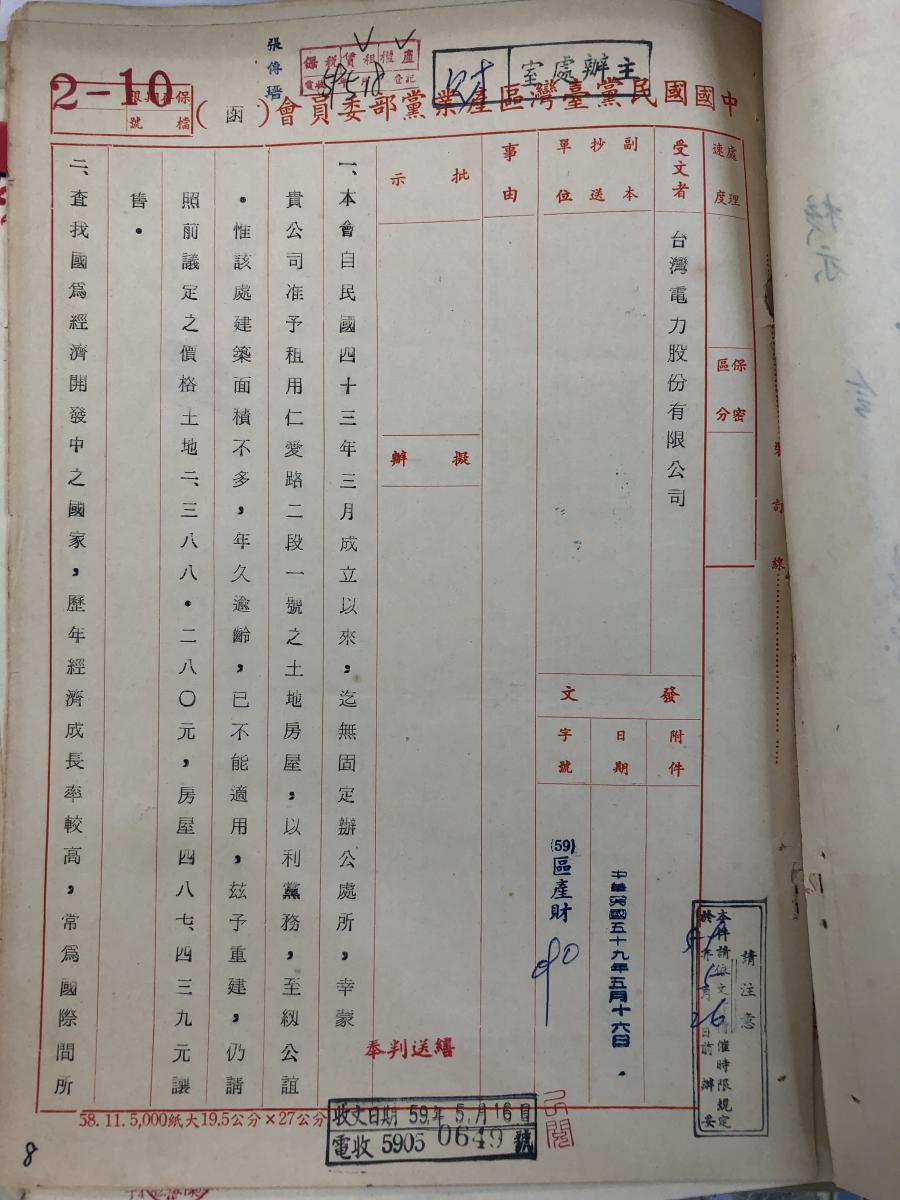 主辦處室
財
產權租賃稅保
登記
59 5 18
張傳瑨
2-10
保存期限
檔號
中國國民黨臺灣區產業黨部委員會（函）
處理速度
保密區分
受文者
台灣電力股份有限公司
副本抄送單位
發文
附件
日期
中華民國五十九年五月十六日．
字號
(59)區產財
90
事由
批示
擬辦
一、本會自民國四十三年三月成立以來，迄無固定辦公處所，幸蒙
貴公司准予租用仁愛路二段一號之土地房屋，以利黨務，至紉公誼
．惟該處建築面積不多，年久逾齡，已不能適用，茲予重建，仍請
照前議定之價格土地二、三八八．二八〇元，房屋四八七、四三九元讓
售．
二、查我國為經濟開發中之國家，歷年經濟成長率較高，常為國際間所
奉判送繕
裝訂線
請注意
本件請依文書稽催時限規定
於59年5月26日前辦妥
58. 11. 5,000紙大19.5公分×27公分
收文日期 59.年 5.月 16日
電收 5905 0649 號
8